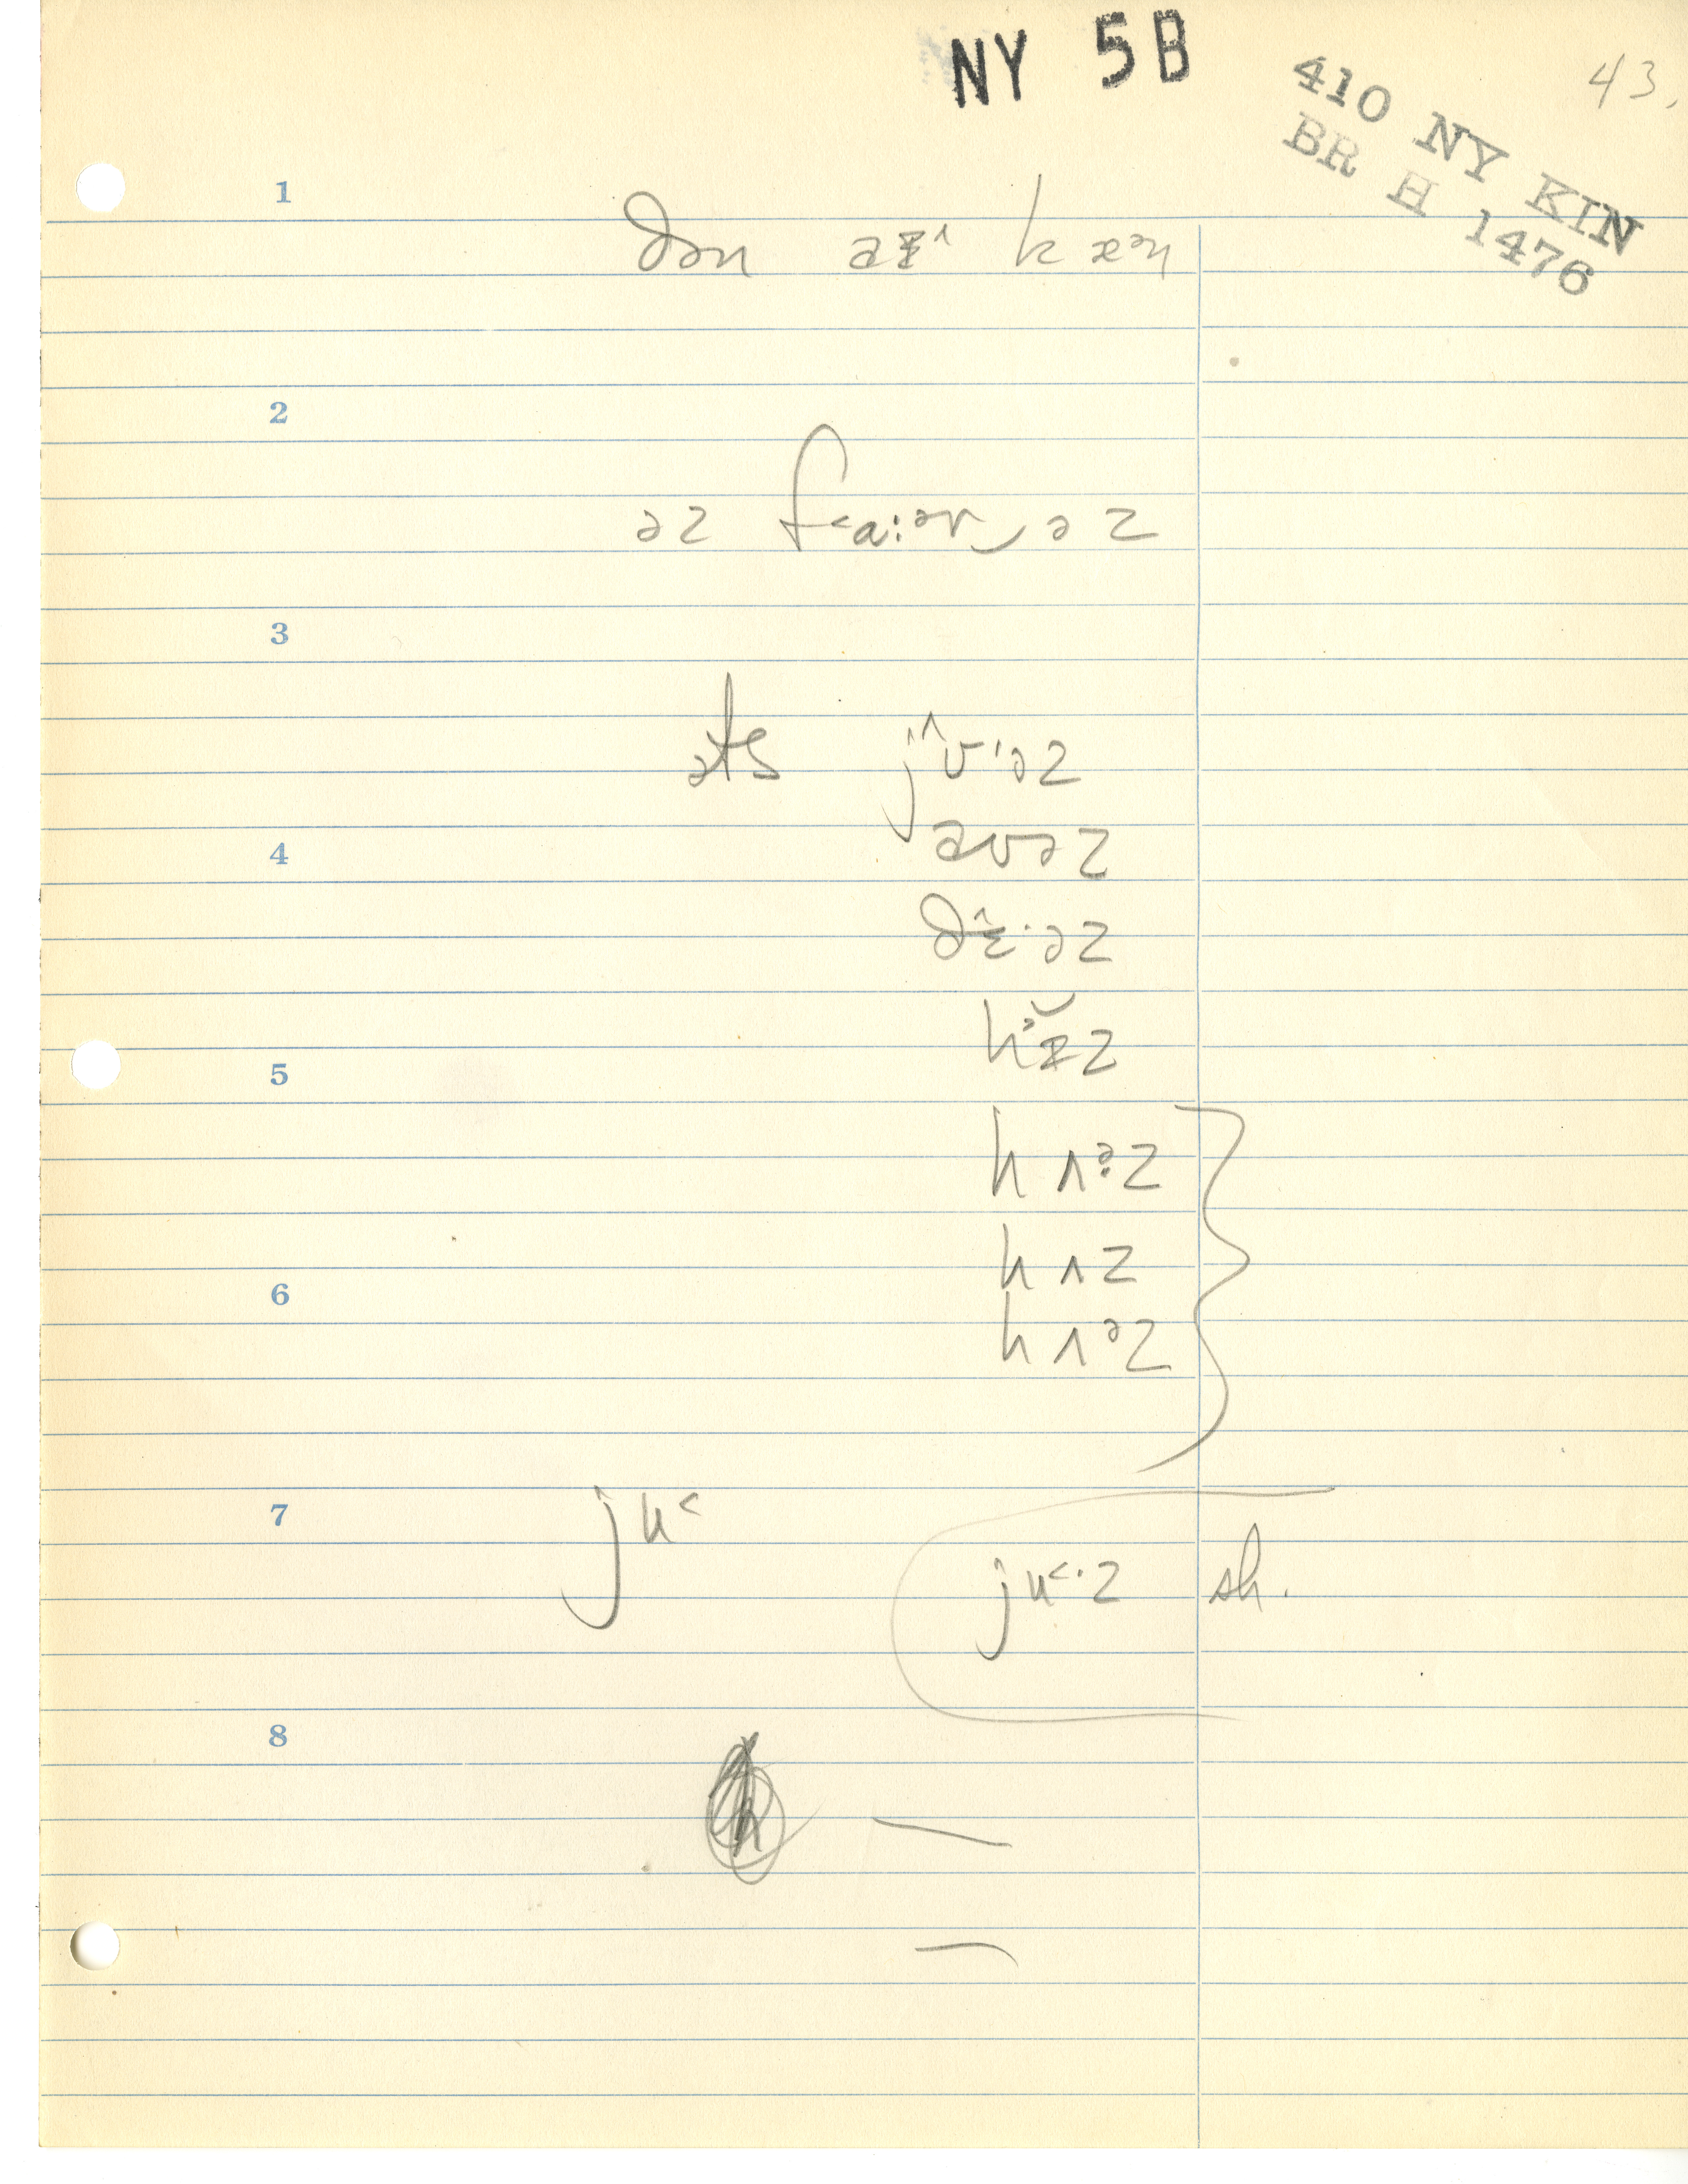 NY 5B
43.
410 NY KIN
BR H 1476
1
ðən aɪ^ k æᵊn
2
əz f˂a:ᵊr‿əz
3
əts j^ʊ·əz
4
aʊəz
ðɛ^·əz
hɪ̆z
5
h ʌᵊ·z
h ʌ z
6
h ʌᵊz
7
ju˂
ju˂·z sh.
8
—
—